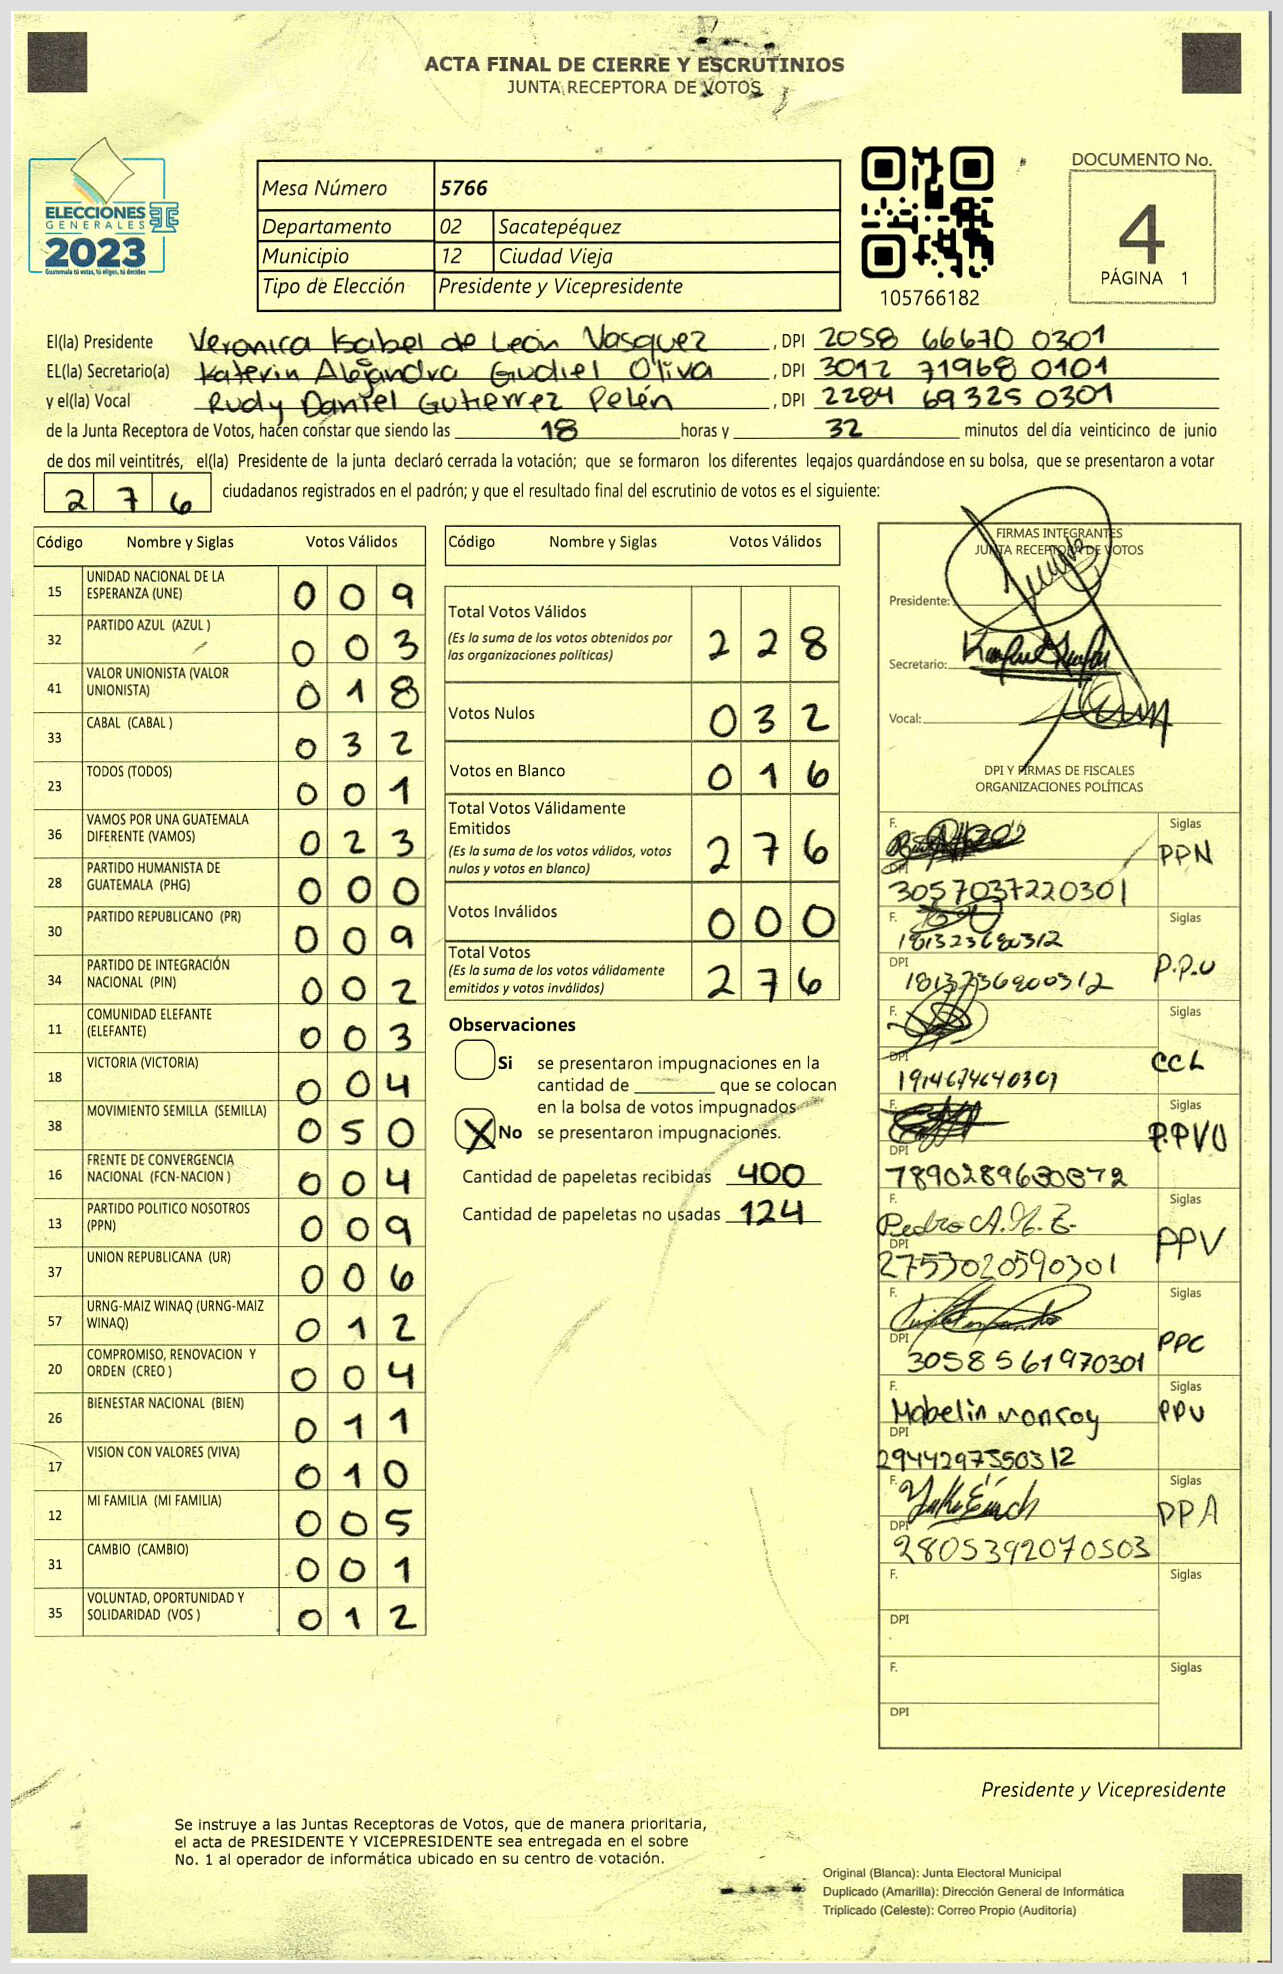 ACTA FINAL DE CIERRE Y ESCRUTINIOS
JUNTA RECEPTORA DE VOTOS
ELECCIONES
GENERALES
2023
Guatemala tú votas, tú eliges, tú decides
Mesa Número 5766
Departamento 02 Sacatepéquez
Municipio 12 Ciudad Vieja
Tipo de Elección Presidente y Vicepresidente
105766182
DOCUMENTO No.
4
PÁGINA 1
El(la) Presidente Veronica Isabel de León Vasquez, DPI 2058 66670 0301
EL(la) Secretario(a) Katerin Alejandra Gudiel Oliva, DPI 3012 71968 0101
y el(la) Vocal Rudy Daniel Gutierrez Pelén, DPI 2284 69325 0301
de la Junta Receptora de Votos, hacen constar que siendo las 18 horas y 32 minutos del día veinticinco de junio
de dos mil veintitrés, el(la) Presidente de la junta declaró cerrada la votación; que se formaron los diferentes legajos guardándose en su bolsa, que se presentaron a votar
276 ciudadanos registrados en el padrón; y que el resultado final del escrutinio de votos es el siguiente:
Código Nombre y Siglas Votos Válidos
15 UNIDAD NACIONAL DE LA ESPERANZA (UNE) 009
32 PARTIDO AZUL (AZUL ) 003
41 VALOR UNIONISTA (VALOR UNIONISTA) 018
33 CABAL (CABAL ) 032
23 TODOS (TODOS) 001
36 VAMOS POR UNA GUATEMALA DIFERENTE (VAMOS) 023
28 PARTIDO HUMANISTA DE GUATEMALA (PHG) 000
30 PARTIDO REPUBLICANO (PR) 009
34 PARTIDO DE INTEGRACIÓN NACIONAL (PIN) 002
11 COMUNIDAD ELEFANTE (ELEFANTE) 003
18 VICTORIA (VICTORIA) 004
38 MOVIMIENTO SEMILLA (SEMILLA) 050
16 FRENTE DE CONVERGENCIA NACIONAL (FCN-NACION ) 004
13 PARTIDO POLITICO NOSOTROS (PPN) 009
37 UNION REPUBLICANA (UR) 006
57 URNG-MAIZ WINAQ (URNG-MAIZ WINAQ) 012
20 COMPROMISO, RENOVACION Y ORDEN (CREO ) 004
26 BIENESTAR NACIONAL (BIEN) 011
17 VISION CON VALORES (VIVA) 010
12 MI FAMILIA (MI FAMILIA) 005
31 CAMBIO (CAMBIO) 001
35 VOLUNTAD, OPORTUNIDAD Y SOLIDARIDAD (VOS ) 012
Código Nombre y Siglas Votos Válidos
Total Votos Válidos 228
(Es la suma de los votos obtenidos por
las organizaciones políticas)
Votos Nulos 032
Votos en Blanco 016
Total Votos Válidamente
Emitidos 276
(Es la suma de los votos válidos, votos
nulos y votos en blanco)
Votos Inválidos 000
Total Votos 276
(Es la suma de los votos válidamente
emitidos y votos inválidos)
Observaciones
Si se presentaron impugnaciones en la
cantidad de ________ que se colocan
en la bolsa de votos impugnados
X No se presentaron impugnaciones.
Cantidad de papeletas recibidas 400
Cantidad de papeletas no usadas 124
FIRMAS INTEGRANTES
JUNTA RECEPTORA DE VOTOS
Presidente:
Secretario:
Vocal:
DPI Y FIRMAS DE FISCALES
ORGANIZACIONES POLÍTICAS
F. Siglas PPN
DPI 3057037220301
F. Siglas P.P.U
DPI
F. Siglas CCL
DPI 1914674640301
F. Siglas P.PVU
DPI
F. Pedro A. Siglas PPV
DPI 2753020590301
F. Siglas PPC
DPI 3058561970301
F. Mabelin Monroy Siglas PPU
DPI 2944297350312
F. Siglas PPA
DPI 2805392070503
F. Siglas
DPI
F. Siglas
DPI
Presidente y Vicepresidente
Se instruye a las Juntas Receptoras de Votos, que de manera prioritaria,
el acta de PRESIDENTE Y VICEPRESIDENTE sea entregada en el sobre
No. 1 al operador de informática ubicado en su centro de votación.
Original (Blanca): Junta Electoral Municipal
Duplicado (Amarilla): Dirección General de Informática
Triplicado (Celeste): Correo Propio (Auditoría)